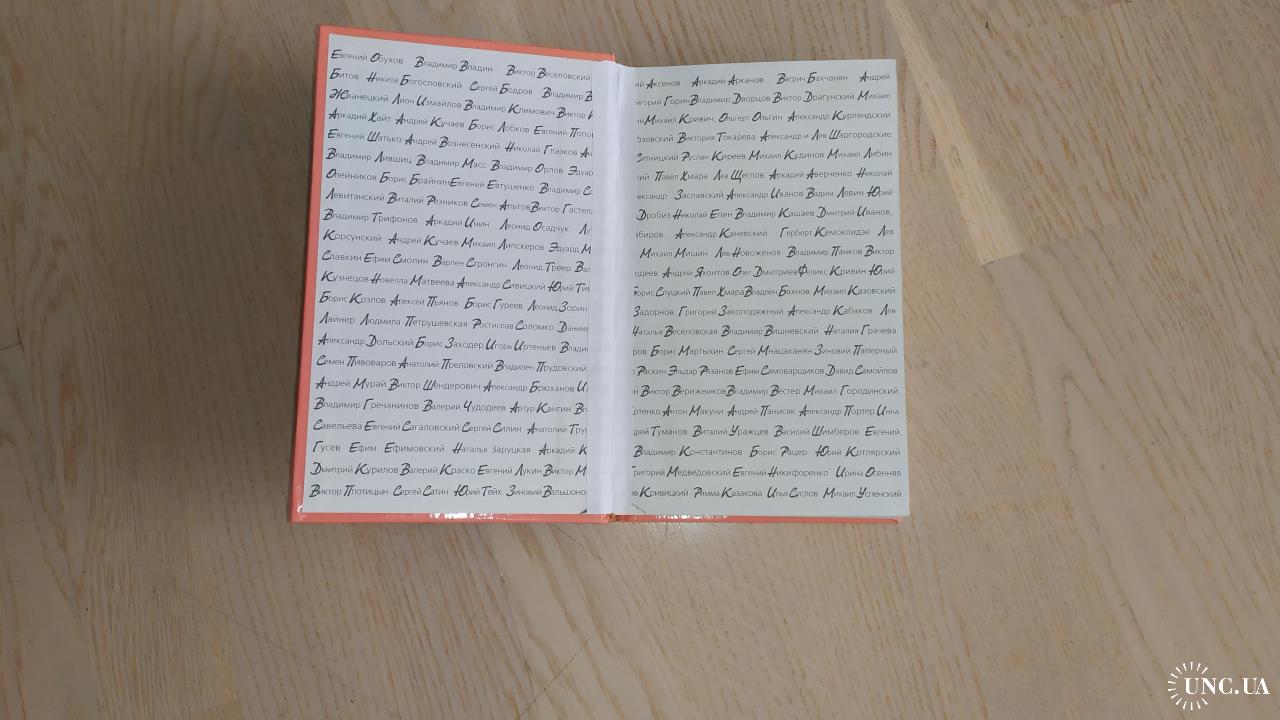 Евгений Обухов Владимир Владин Виктор Веселовский
Битов Никита Богословский Сергей Бодров Владимир
Жванецкий Лион Измайлов Владимир Климович Виктор
Аркадий Хайт Андрей Кучаев Борис Лобков Евгений
Евгений Шатько Андрей Вознесенский Николай Глазков
Владимир Лившиц Владимир Масс Владимир Орлов
Олейников Борис Брайнин Евгений Евтушенко Владимир
Левитанский Виталий Резников Семен Альтов Виктор
Владимир Трифонов Аркадий Инин Леонид Осадчук
Корсунский Андрей Кучаев Михаил Липскеров Эдуард
Славкин Ефим Смолин Варлен Стронгин Леонид Треер
Кузнецов Новелла Матвеева Александр Сивицкий Юрий
Борис Козлов Алексей Пьянов Борис Гуреев Леонид Зорин
Лайнер Людмила Петрушевская Ростислав Соломко
Александр Дольский Борис Заходер Игорь Иртеньев
Семен Пивоваров Анатолий Преловский Владилен Прудовский
Андрей Мурай Виктор Шендерович Александр Брюханов
Владимир Гречанинов Валерий Чудодеев Артур Кангин
Савельева Евгений Сагаловский Сергей Силин Анатолий
Гусев Ефим Ефимовский Наталья Заруцкая Аркадий
Дмитрий Курилов Валерий Краско Евгений Лукин Виктор
Виктор Плотицын Сергей Сатин Юрий Тейх Зиновий
Аксенов Аркадий Арканов Вагрич Бахчанян Андрей
Горин Владимир Дворцов Виктор Драгунский Михаил
Михаил Кривич, Ольгерт Ольгин Александр Курляндский
Виктория Токарева Александр и Лев Шаргородские
Руслан Киреев Михаил Кудинов Михаил Либин
Павел Хмара Лев Щеглов Аркадий Аверченко Николай
Заславский Александр Иванов Вадим Левин Юрий
Дробиз Николай Елин Владимир Кашаев Дмитрий Иванов,
Александр Каневский Герберт Кемоклидзе Лев
Михаил Мишин Лев Новоженов Владимир Панков Виктор
Андрей Яхонтов Олег Дмитриев Феликс Кривин Юрий
Борис Слуцкий Павел Хмара Владлен Бахнов Михаил Казовский
Задорнов Григорий Заколодяжный Александр Кабаков Лев
Наталья Веселовская Владимир Вишневский Наталия Грачева
Борис Мартыкин Сергей Мнацаканян Зиновий Паперный
Раскин Эльдар Рязанов Ефим Самоварщиков Давид Самойлов
Виктор Верижников Владимир Вестер Михаил Городинский
Антон Макуни Андрей Панисяк Александр Портер Инна
Туманов Виталий Уражцев Василий Шимберов Евгений
Владимир Константинов Борис Рацер Юрий Котлярский
Григорий Медведовский Евгений Никифоренко Ирина Осенняя
Кривицкий Римма Казакова Илья Суслов Михаил Успенский
UNC.UA